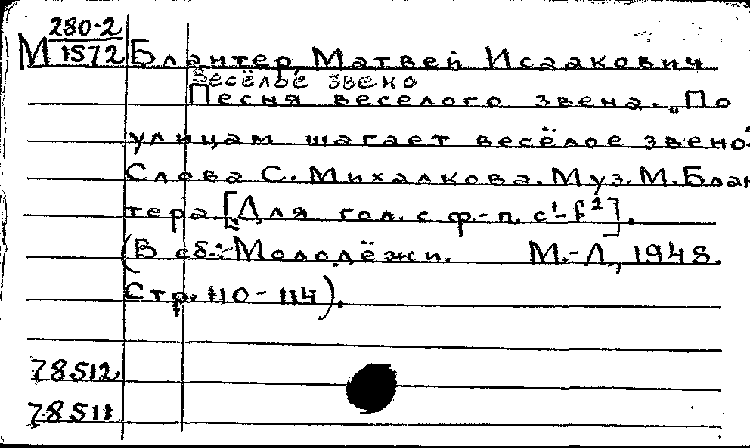 280-2
М 1572 Блантер, Матвей Исаакович
Весёлое звено
Песня веселого звена. "По
улицам шагает весёлое звено"
Слова С. Михалкова. Муз. М. Блан-
тера. [Для гол. с ф.-п. c¹-f²].
(В сб.: Молодёжи. М.-Л., 1948.
Стр. 110-114).
78512
78511